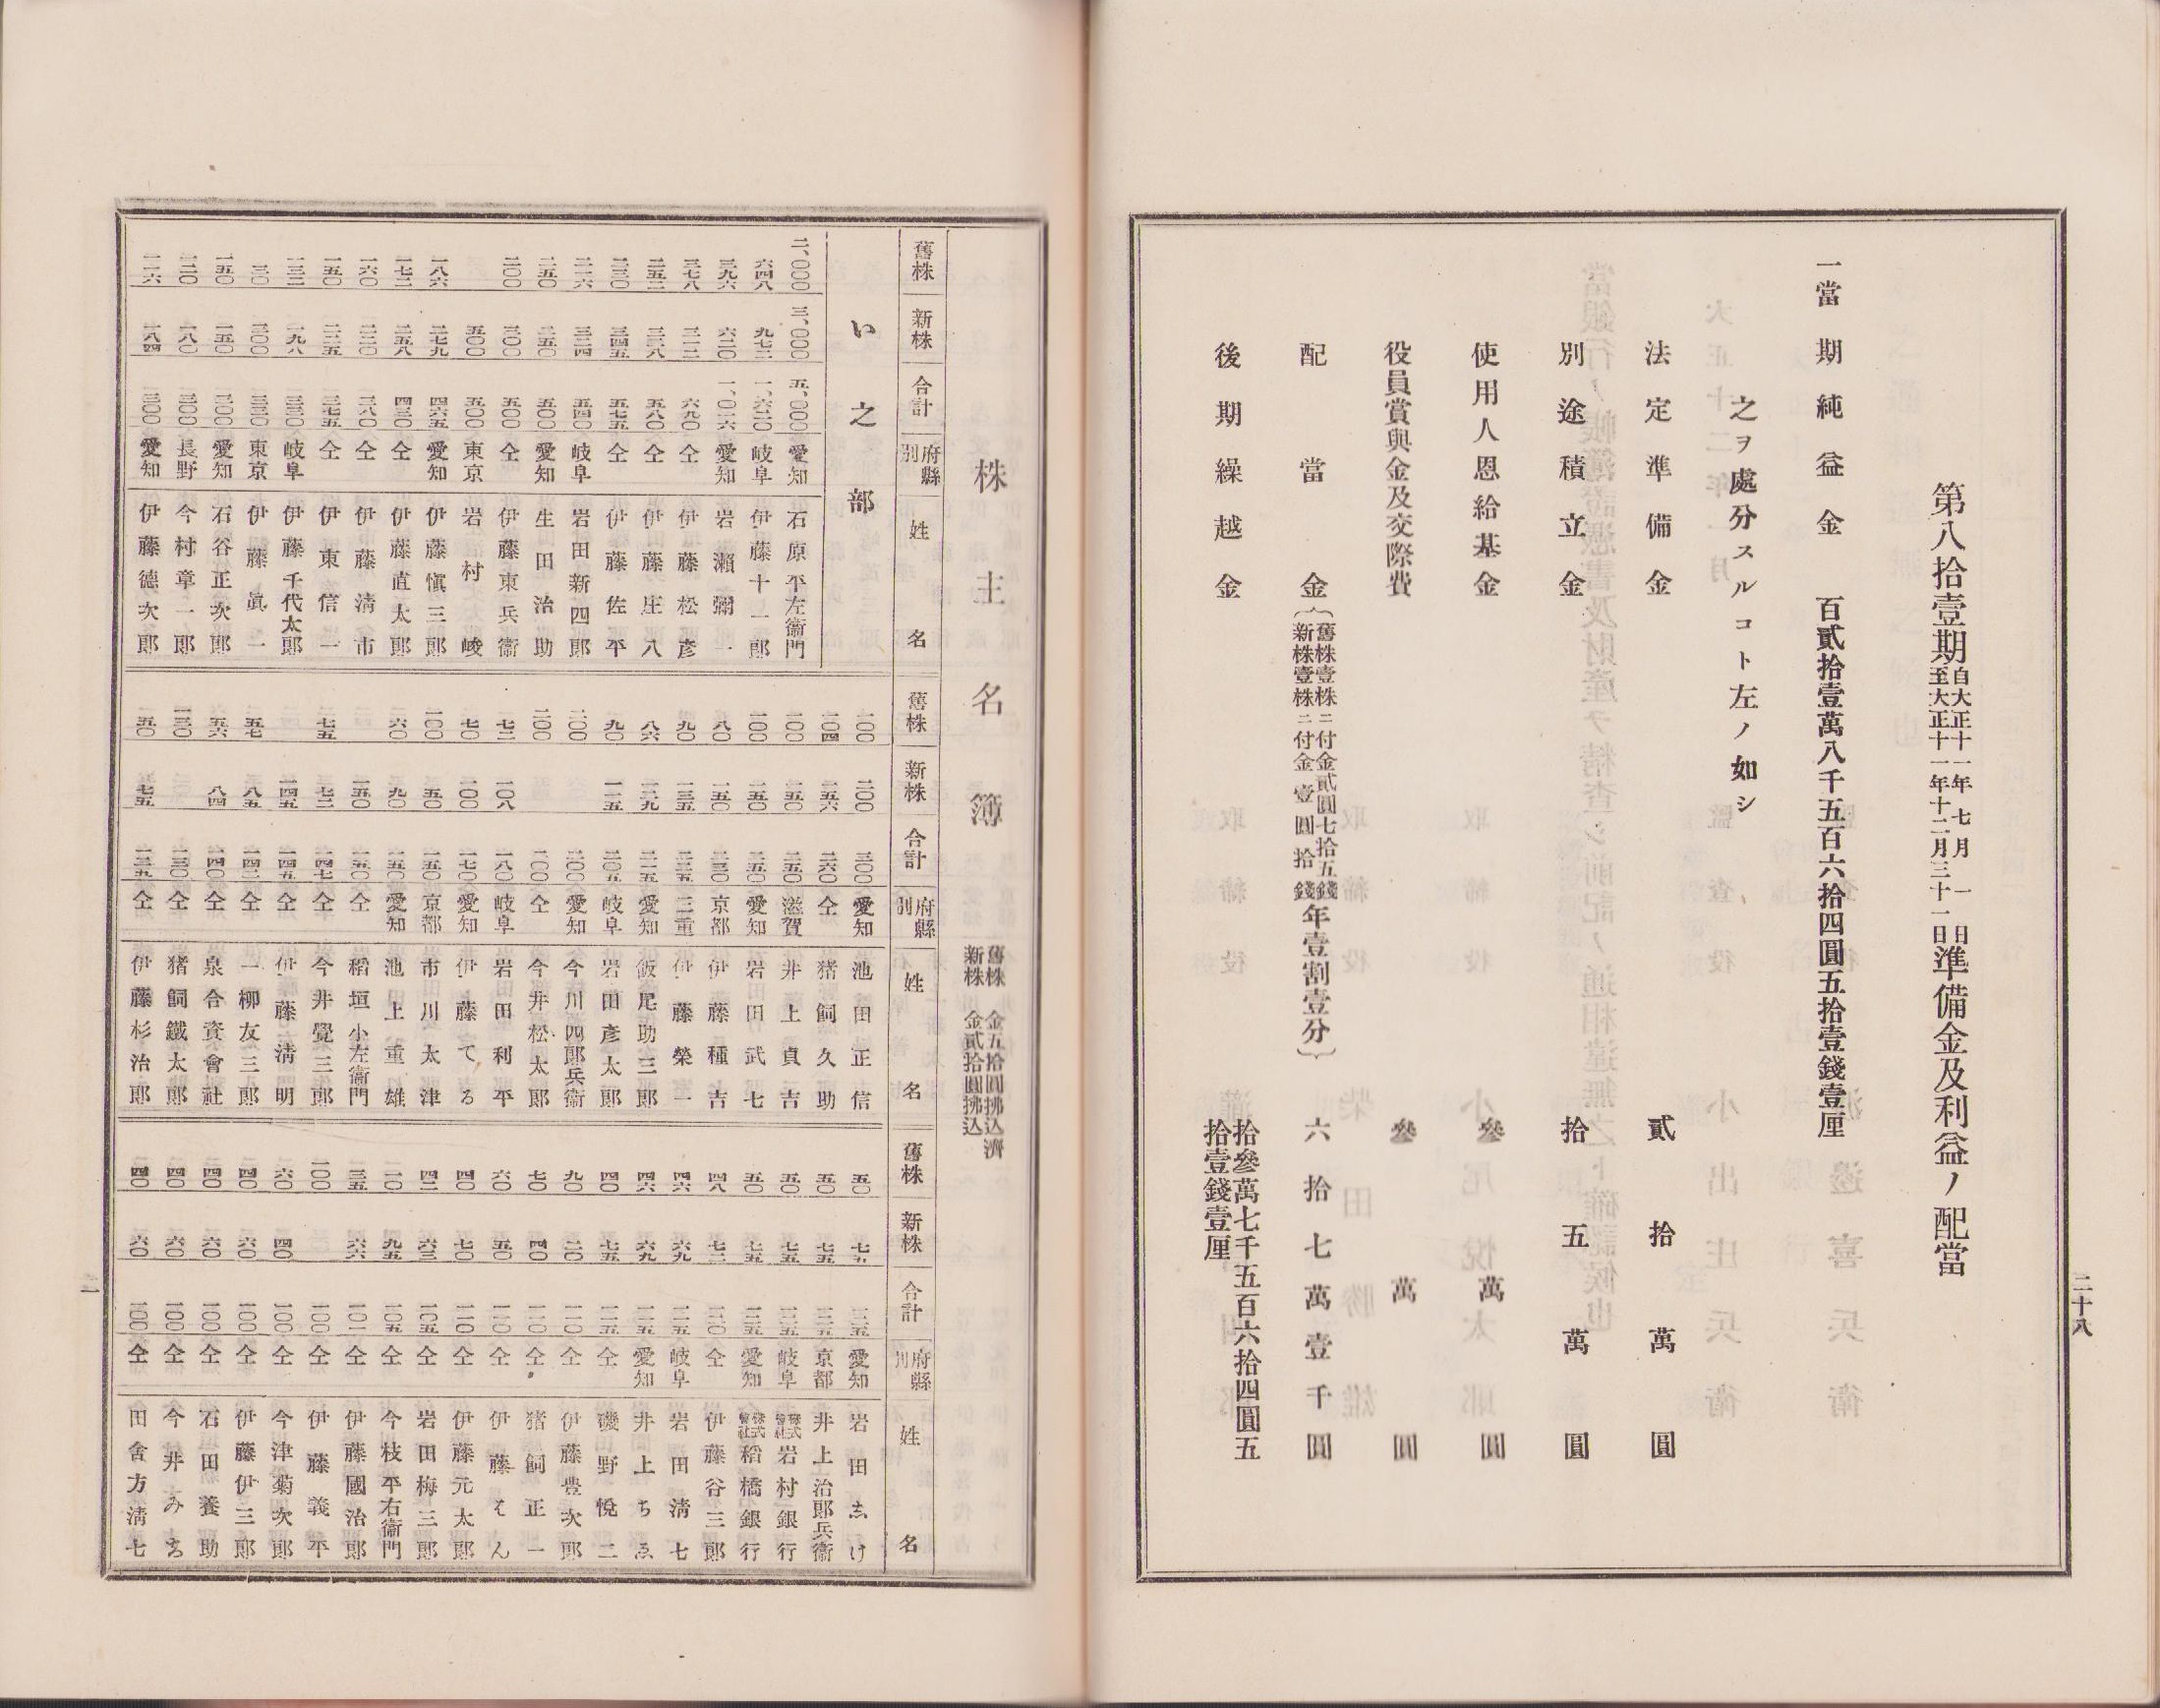 二十八
第八拾壹期自大正十一年七月一日至大正十一年十二月三十一日準備金及利益ノ配當
一當期純益金 百貳拾壹萬八千五百六拾四圓五拾壹錢壹厘
之ヲ處分スルコト左ノ如シ
法定準備金 貳拾萬圓
別途積立金 拾五萬圓
使用人恩給基金 參萬圓
役員賞與金及交際費 參萬圓
配當金(舊株壹株ニ付金貳圓七拾五錢 新株壹株ニ付金壹圓拾錢 年壹割壹分) 六拾七萬壹千圓
後期繰越金 拾參萬七千五百六拾四圓五拾壹錢壹厘
株主名簿 舊株金五拾圓拂込濟 新株金貳拾圓拂込
舊株 新株 合計 府縣別 姓名
い之部
二、〇〇〇 三、〇〇〇 五、〇〇〇 愛知 石原平左衞門
六四八 九七二 一、六二〇 岐阜 伊藤十一郎
三九六 六二〇 一、〇一六 愛知 岩瀨彌一
三七八 三一二 六九〇 仝 伊藤松彥
二五二 三二八 五八〇 仝 伊藤庄八
二三〇 三四五 五七五 仝 伊藤佐平
二一六 三二四 五四〇 岐阜 岩田新四郎
二五〇 二五〇 五〇〇 愛知 生田治助
二〇〇 三〇〇 五〇〇 仝 伊藤東兵衞
五〇〇 五〇〇 東京 岩村峻
一八六 二七九 四六五 愛知 伊藤愼三郎
一七二 二五八 四三〇 仝 伊藤直太郎
一六〇 二二〇 三八〇 仝 伊藤淸市
一五〇 二二五 三七五 仝 伊東信一
一三二 一九八 三三〇 岐阜 伊藤千代太郎
三〇 三〇〇 三三〇 東京 伊藤眞一
一五〇 一五〇 三〇〇 愛知 石谷正次郎
一二〇 一八〇 三〇〇 長野 今村章一郎
一一六 一八四 三〇〇 愛知 伊藤德次郎
舊株 新株 合計 府縣別 姓名
一〇〇 二〇〇 三〇〇 愛知 池田正信
一〇四 一五六 二六〇 仝 猪飼久助
一〇〇 一五〇 二五〇 滋賀 井上貞吉
一〇〇 一五〇 二五〇 愛知 岩田武七
八〇 一五〇 二三〇 京都 伊藤種吉
九〇 一三五 二二五 三重 伊藤榮一
八六 一二九 二一五 愛知 飯尾助三郎
九〇 一一五 二〇五 岐阜 岩田彥太郎
二〇〇 二〇〇 愛知 今川四郎兵衞
二〇〇 二〇〇 仝 今井松太郎
七二 一〇八 一八〇 岐阜 岩田利平
七〇 一〇〇 一七〇 愛知 伊藤てる
一〇〇 五〇 一五〇 京都 市川太津
六〇 九〇 一五〇 愛知 池上重雄
一五〇 一五〇 仝 稻垣小左衞門
七五 七二 一四七 仝 今井覺三郎
一四五 一四五 仝 伊藤淸明
五七 八五 一四二 仝 一柳友三郎
五六 八四 一四〇 仝 泉合資會社
一三〇 一三〇 仝 猪飼鐵太郎
五〇 七五 一二九 仝 伊藤杉治郎
舊株 新株 合計 府縣別 姓名
五〇 七五 一二五 愛知 岩田ゑけ
五〇 七五 一二五 京都 井上治郎兵衞
五〇 七五 一二五 岐阜 株式會社岩村銀行
五〇 七五 一二五 愛知 株式會社稻橋銀行
四八 七二 一二〇 仝 伊藤谷三郎
四六 六九 一一五 岐阜 岩田淸七
四六 六九 一一五 愛知 井上ちゑ
四〇 七五 一一五 仝 磯野悅二
九〇 二〇 一一〇 仝 伊藤豊次郎
七〇 四〇 一一〇 仝 猪飼正一
六〇 五〇 一一〇 仝 伊藤そん
四〇 七〇 一一〇 仝 伊藤元太郎
四二 六三 一〇五 仝 岩田梅三郎
一〇 九五 一〇五 仝 今枝平右衞門
三五 六六 一〇一 仝 伊藤國治郎
一〇〇 一〇〇 仝 伊藤義平
六〇 四〇 一〇〇 仝 今津菊次郎
四〇 六〇 一〇〇 仝 伊藤伊三郎
四〇 六〇 一〇〇 仝 石田養助
四〇 六〇 一〇〇 仝 今井みち
四〇 六〇 一〇〇 仝 田舍方淸七